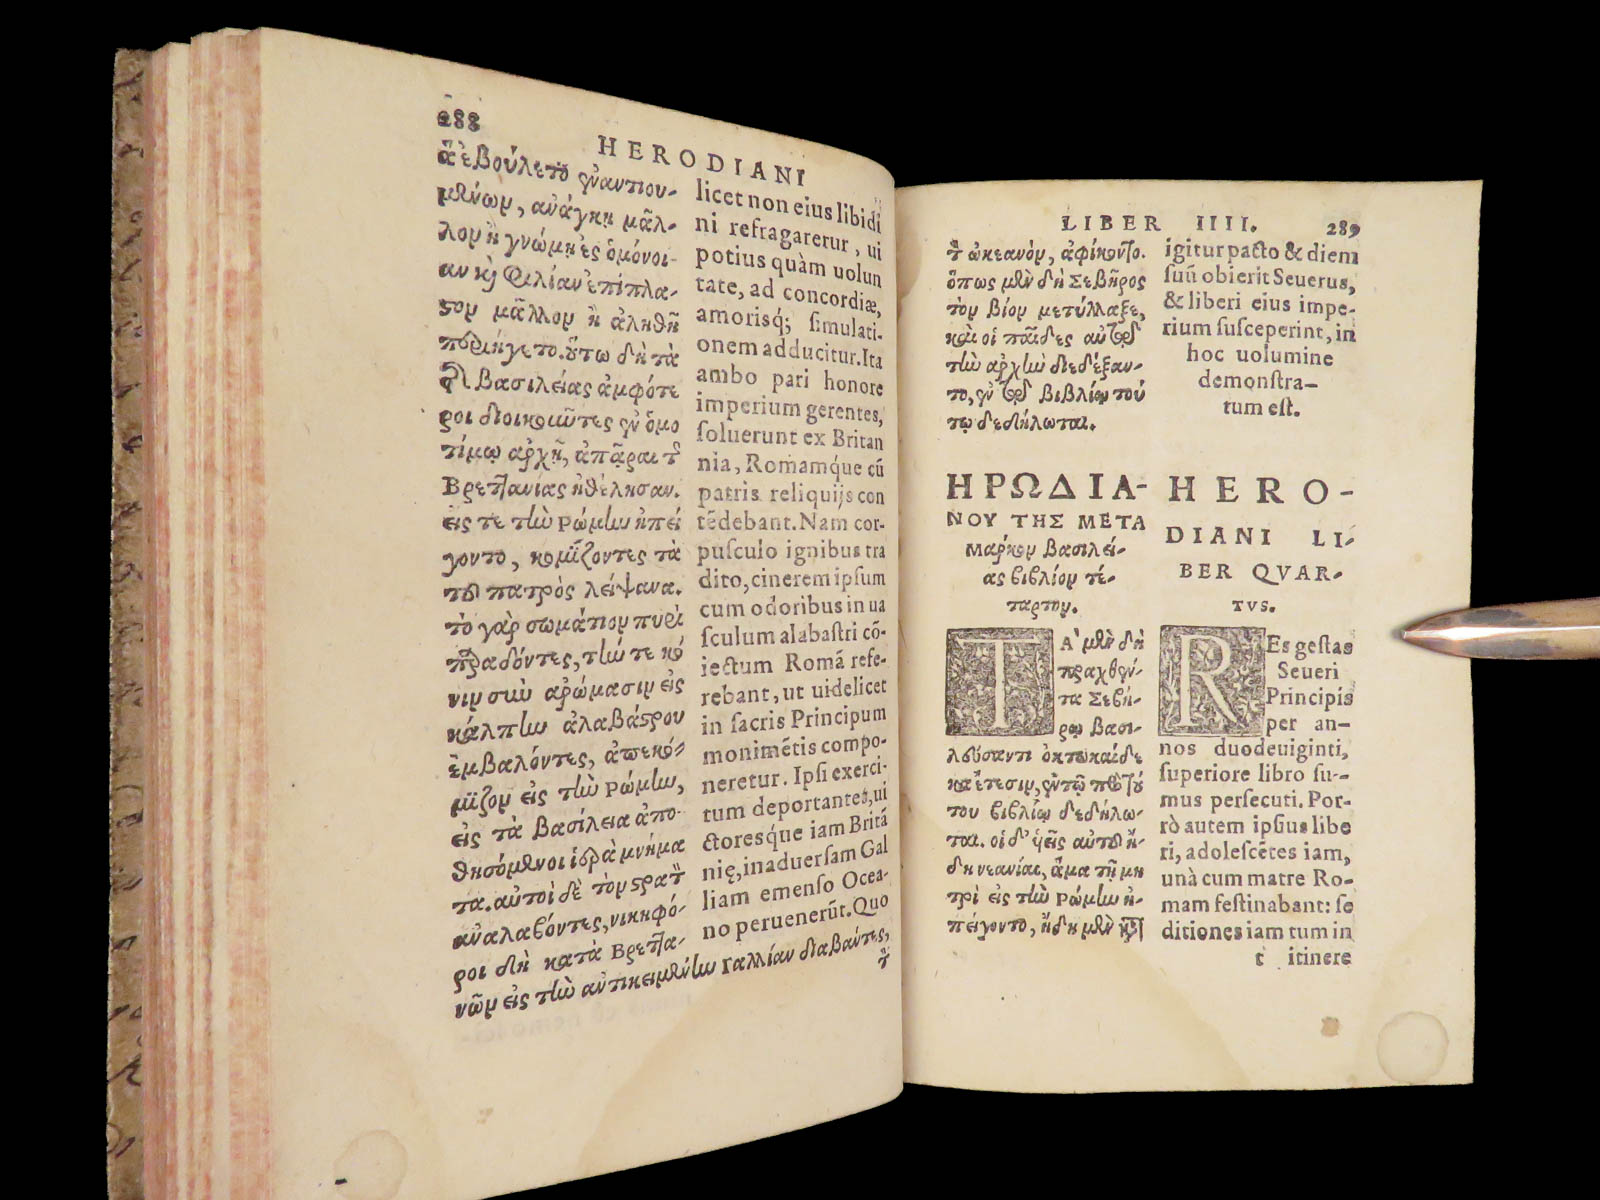 288
HERODIANI
ἃ ἐβούλετο ἐναντιου-
μένων, ἀνάγκῃ μᾶλ-
λον ἢ γνώμῃ ἐς ὁμόνοι-
αν καὶ φιλίαν ἐπίπλα-
στον μᾶλλον ἢ ἀληθῆ
περιήγετο. οὕτω δὴ τὰ
τῆς βασιλείας ἀμφότε
ροι διοικοῦντες ἐν ὁμο
τίμῳ ἀρχῇ, ἀπᾶραι τῆς
Βρεττανίας ἠθέλησαν.
εἴς τε τὴν Ρώμην ἠπεί
γοντο, κομίζοντες τὰ
τοῦ πατρὸς λείψανα.
τὸ γὰρ σωμάτιον πυρὶ
παραδόντες, τήν τε κό
νιν σὺν ἀρώμασιν εἰς
κάλπην ἀλαβάστρου
ἐμβαλόντες, ἀπεκό-
μιζον εἰς τὴν Ρώμην,
εἰς τὰ βασίλεια ἀπο-
θησόμενοι ἱερὰ μνήμα
τα. αὐτοὶ δὲ τὸν στρατὸν
ἀναλαβόντες, νικηφό-
ροι δὴ κατὰ Βρεττα-
νῶν εἰς τὴν ἀντικειμένην Γαλλίαν διαβάντες,
τὸν
licet non eius libidi
ni refragarerur, ui
potius quàm uolun
tate, ad concordiæ,
amorisq́; simulati-
onem adducitur. Ita
ambo pari honore
imperium gerentes,
soluerunt ex Britan
nia, Romamq́ue cū
patris reliquijs con
tēdebant. Nam cor-
pusculo ignibus tra
dito, cinerem ipsum
cum odoribus in ua
sculum alabastri cō-
iectum Romā refe-
rebant, ut uidelicet
in sacris Principum
monimētis compo-
neretur. Ipsi exerci-
tum deportantes, ui
ctoresq́ue iam Britā
nię, in aduersam Gal
liam emenso Ocea-
no peruenerūt. Quo
LIBER IIII. 289
τὸν ὠκεανὸν, ἀφίκοντο.
ὅπως μὲν δὴ Σεβῆρος
τὸν βίον μετήλλαξε,
καὶ οἱ παῖδες αὐτοῦ
τὴν ἀρχὴν διεδέξαν-
το, ἐν τῷδε βιβλίῳ τού
τῳ δεδήλωται.
igitur pacto & diem
suū obierit Seuerus,
& liberi eius impe-
rium susceperint, in
hoc uolumine
demonstra-
tum est.
ΗΡΩΔΙΑ-
ΝΟΥ ΤΗΣ ΜΕΤΑ
Μαρκον βασιλεί-
ας βιβλίον τέ-
ταρτον.
ΤΑ' μὲν δὴ
πραχθέν-
τα Σεβή-
ρῳ βασι-
λεύσαντι ὀκτωκαίδε
κα ἔτεσιν, ἐν τῷ πρὸ τού
του βιβλίῳ δεδήλω-
ται. οἱ δ' υἱεῖς αὐτοῦ ἤ-
δη νεανίαι, ἅμα τῇ μη
τρὶ εἰς τὴν Ρώμην ἠ-
πείγοντο, ἤδη μὲν κατὰ
HERO-
DIANI LI-
BER QVAR-
TVS.
REs gestas
Seueri
Principis
per an-
nos duodeuiginti,
superiore libro su-
mus persecuti. Por-
rò autem ipsius libe
ri, adolescētes iam,
unà cum matre Ro-
mam festinabant: se
ditiones iam tum in
t itinere